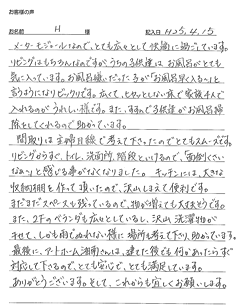 お客様の声
お名前 H 様 記入日 H25.4.15
メーターモジュールなので、とても広々として快適に過ごしています。
リビングはもちろんなのですが、うちの子供達は、お風呂がとても
気に入っています。お風呂嫌いだった子が「お風呂早く入る〜」と
言うようになりビックリです。広くて、ヒヤッとしない床で家族4人で
入れるのがうれしい様です。また、すすんで子供達がお風呂掃
除をしてくれるので助かっています。
間取りは主婦目線で考え下さったのでとてもスムーズです。
リビングからすぐ、トイレ、洗面所、階段といけるので、「面倒くさい
なぁ〜」と感じる事がなくなりました。キッチンには、大きな
収納棚を作って頂いたので、沢山しまえて便利です。
まだまだスペースも残っているので、物が増えても大丈夫そうです。
また、2Fのベランダも広々としているし、沢山洗濯物が
干せて、しかも雨でぬれない様に場所も考えて下さり、助かっています。
最後に、アートホーム湘南さんは、建てた後でも何かあったらすぐ
対応して下さるので、とても安心で、とても満足しています。
ありがとうございます。そして、これからも宜しくお願いします。